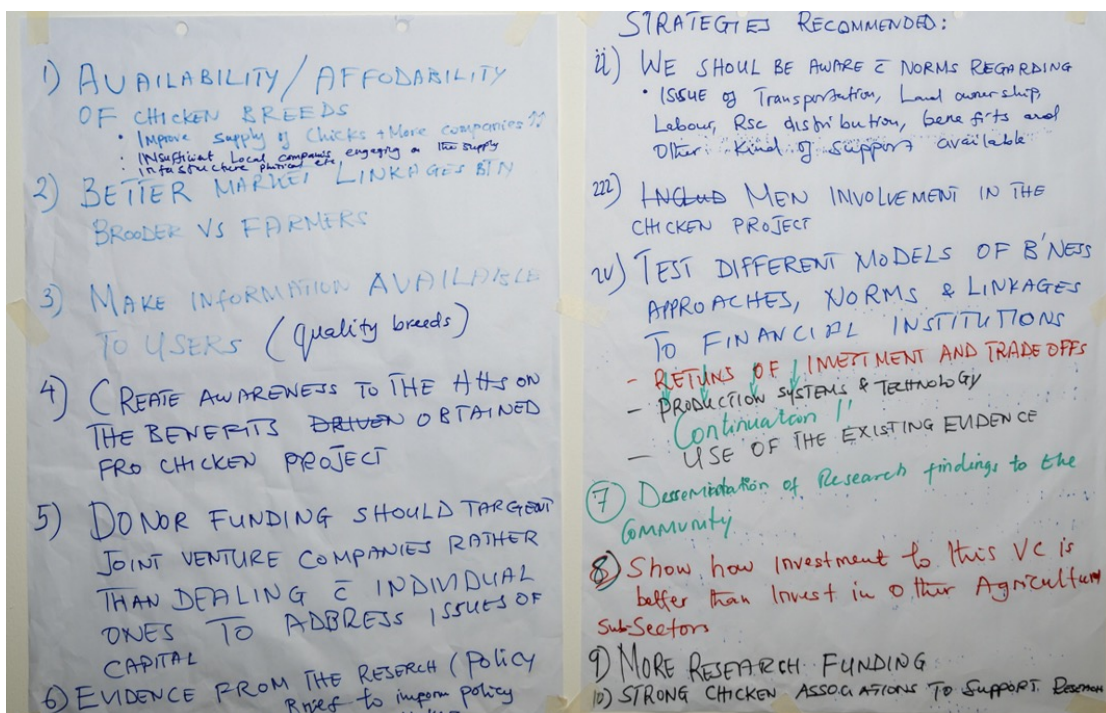 1) AVAILABILITY/AFFODABILITY
OF CHICKEN BREEDS
• Improve supply of chicks + More companies ⇈
• INsufficient Local companies engaging on the supply
• infrastructure etc
2) BETTER MARKET LINKAGES BTN
BROODER VS FARMERS
3) MAKE INFORMATION AVAILABLE
TO USERS (quality breeds)
4) CREATE AWARENESS TO THE HHs ON
THE BENEFITS DRIVEN OBTAINED
FRO CHICKEN PROJECT
5) DONOR FUNDING SHOULD TARGENT
JOINT VENTURE COMPANIES RATHER
THAN DEALING C̄ INDIVIDUAL
ONES TO ADDRESS ISSUES OF
CAPITAL
6) EVIDENCE FROM THE RESERCH (Policy
Brief to inform policy
STRATEGIES RECOMMENDED:
ii) WE SHOUL BE AWARE C̄ NORMS REGARDING
• ISSUE of Transportation, Land ownership,
Labour, Rsc distribution, benefits and
Other Kind of support available
iii) INCLUD MEN INVOLVEMENT IN THE
CHICKEN PROJECT
iv) TEST DIFFERENT MODELS OF B'NESS
APPROACHES, NORMS & LINKAGES
TO FINANCIAL INSTITUTIONS
- RETUNS OF INVETMENT AND TRADE OFFS
- PRODUCTION SYSTEMS & TECHNOLOGY
Continuation !!
- USE OF THE EXISTING EVIDENCE
7 Dessemintation of Research findings to the
Community
8) Show how Investment to this VC is
better than Invest in other Agriculture
Sub-Sectors
9) MORE RESEARCH FUNDING
10) STRONG CHICKEN ASSOCIATIONS TO SUPPORT Research